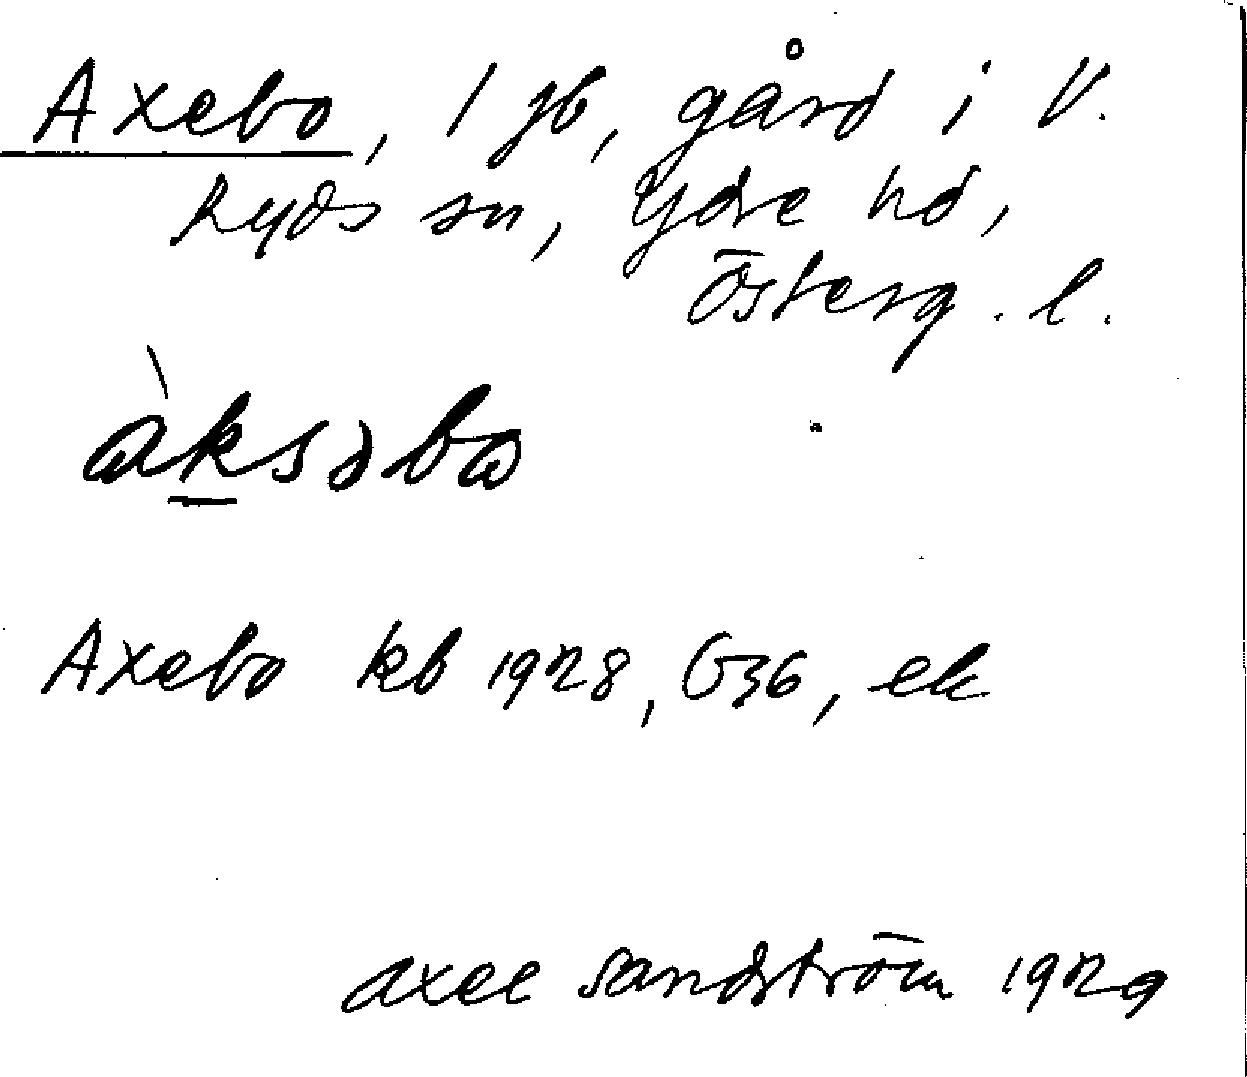 Axebo, 1 jb, gård i V.
Ryds sn, Ydre hd,
Österg. l.
àksəbo
Axebo kb 1928, G36, ek
Axel Sandström 1929